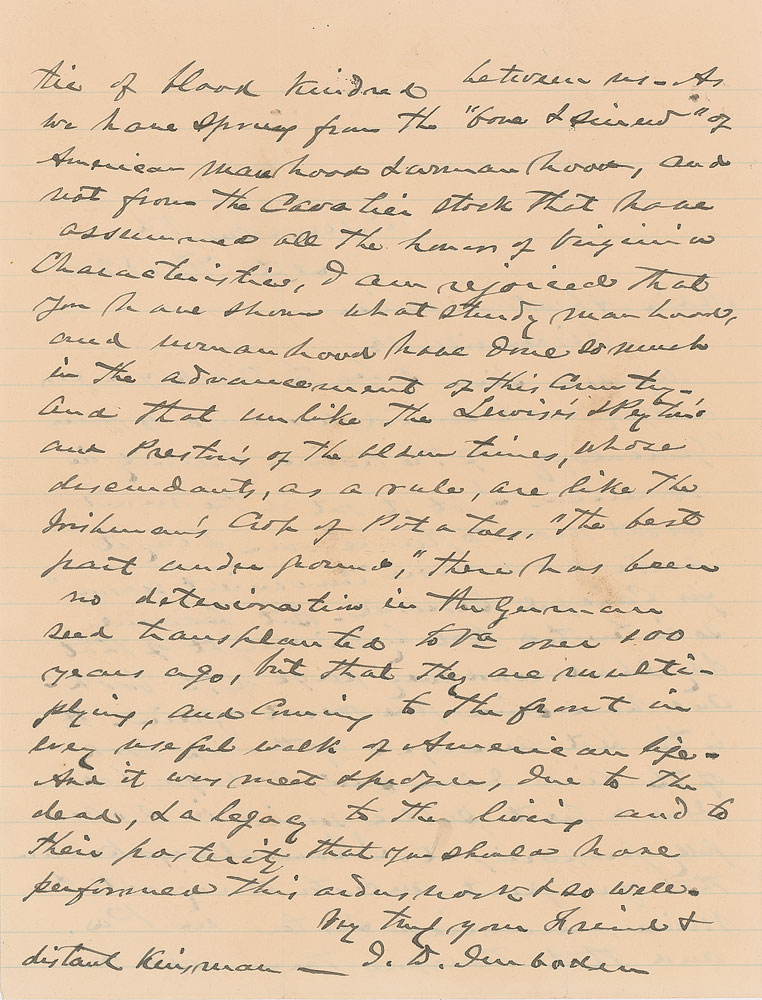 tie of blood kindred between us - As
we have sprung from the "bone & sinew" of
American manhood & womanhood, and
not from the Cavalier stock that have
assumed all the honors of Virginia
Characteristics, I am rejoiced that
you have shown what sturdy manhood,
and womanhood have done so much
in the advancement of this Country -
And that unlike the Lewis's & Peyton's
and Preston's of the olden times, whose
descendants, as a rule, are like the
Irishman's Crop of Potatoes, "The best
part under ground," there has been
no deterioration in the German
seed transplanted to Va over 100
years ago, but that they are multi-
plying, and Coming to the front in
every useful walk of American life -
And it was meet & proper, due to the
dead, & a legacy to the living and to
their posterity that you should have
performed this arduous work & so well -
Very truly your Friend &
distant Kinsman — J. D. Imboden